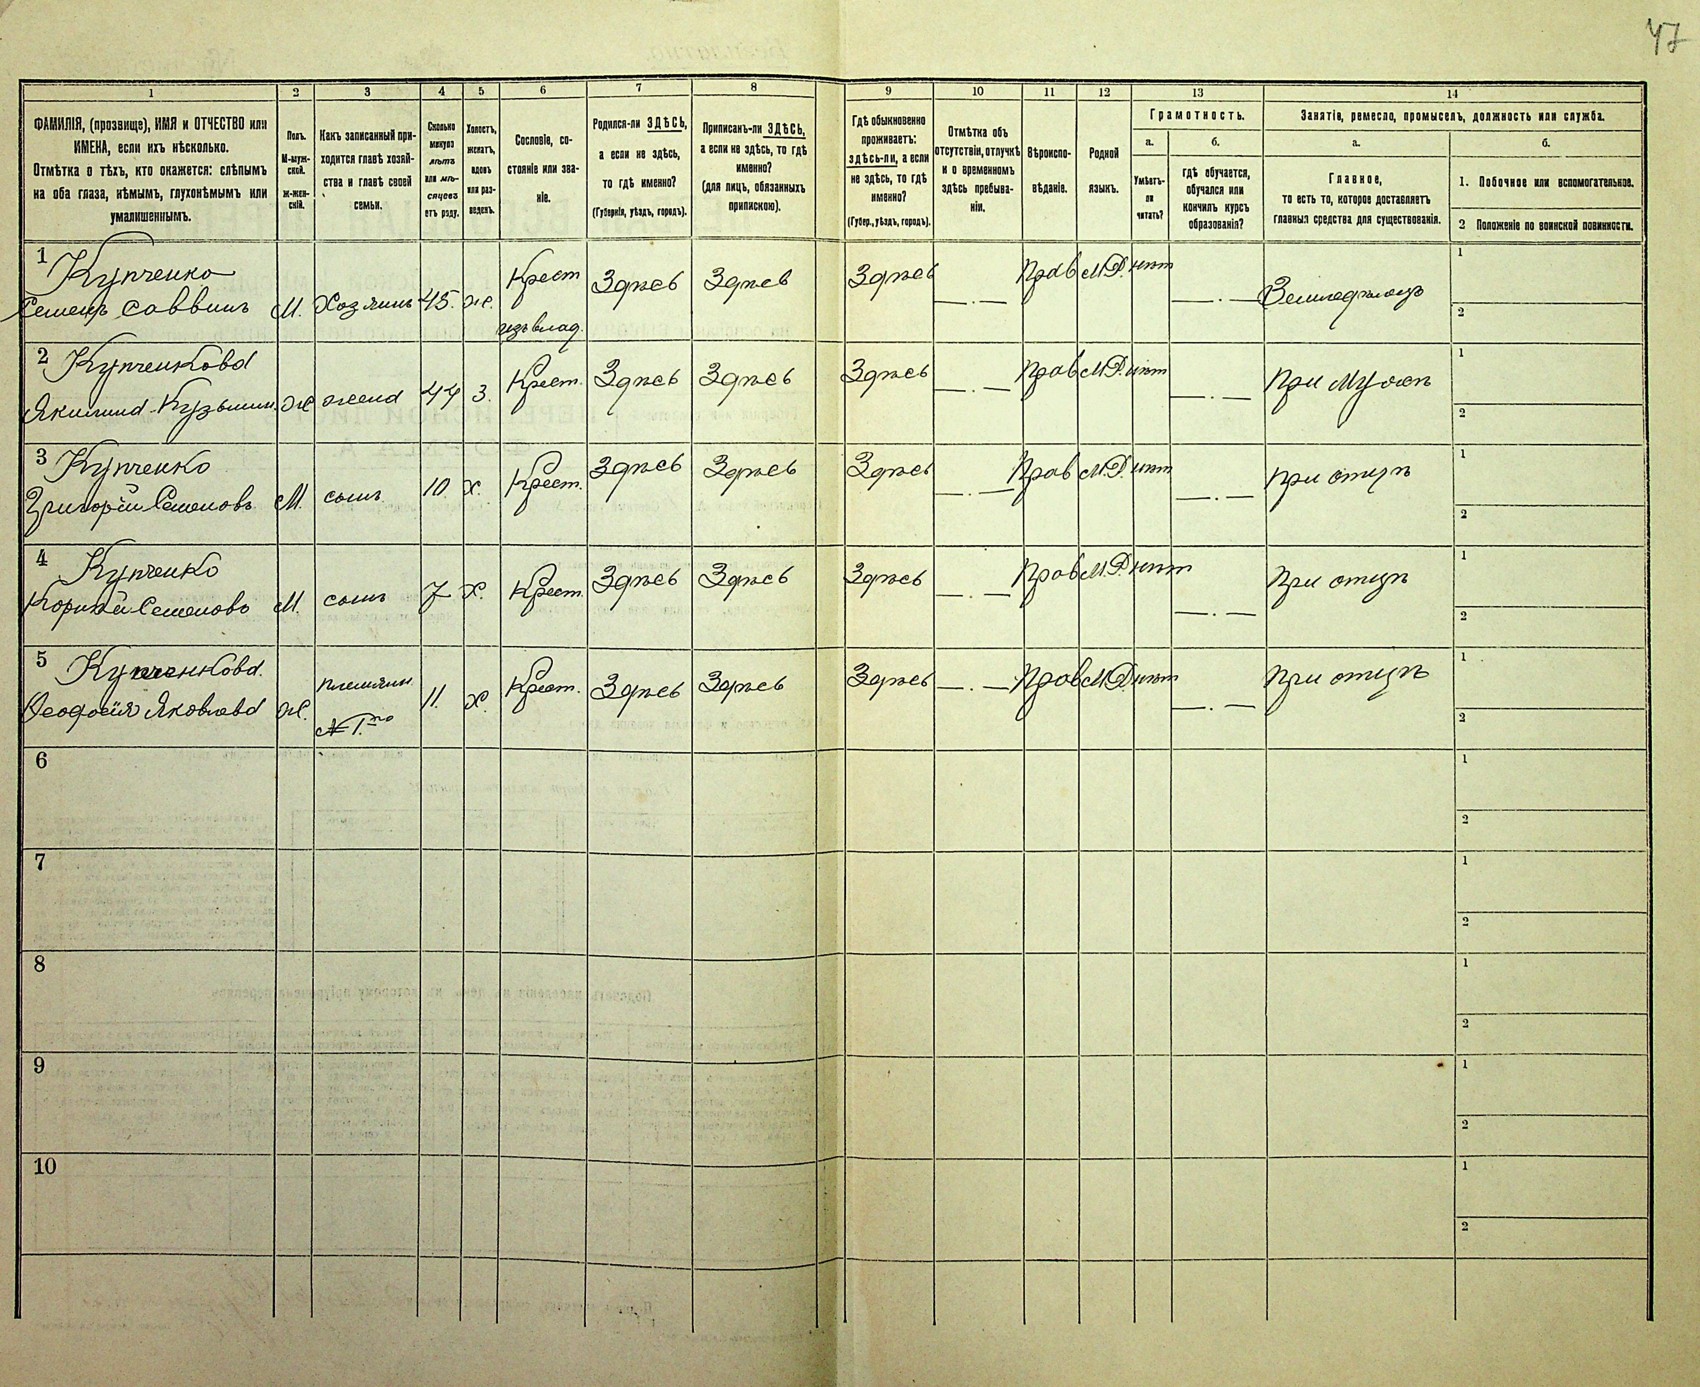 47
1 2 3 4 5 6 7 8 9 10 11 12 13 14
ФАМИЛІЯ, (прозвище), ИМЯ и ОТЧЕСТВО или ИМЕНА, если ихъ нѣсколько.
Отмѣтка о тѣхъ, кто окажется: слѣпымъ на оба глаза, нѣмымъ, глухонѣмымъ или умалишеннымъ.
Полъ. М-мужской. Ж-женскій.
Какъ записанный приходится главѣ хозяйства и главѣ своей семьи.
Сколько минуло лѣтъ или мѣсяцевъ отъ роду.
Холостъ, женатъ, вдовъ или разведенъ.
Сословіе, состояніе или званіе.
Родился-ли ЗДѢСЬ, а если не здѣсь, то гдѣ именно?
(Губернія, уѣздъ, городъ).
Приписанъ-ли ЗДѢСЬ, а если не здѣсь, то гдѣ именно?
(для лицъ, обязанныхъ припискою).
Гдѣ обыкновенно проживаетъ: здѣсь-ли, а если не здѣсь, то гдѣ именно?
(Губер., уѣздъ, городъ).
Отмѣтка объ отсутствіи, отлучкѣ и о временномъ здѣсь пребываніи.
Вѣроисповѣданіе.
Родной языкъ.
Грамотность.
а. Умѣетъ-ли читать?
б. гдѣ обучается, обучался или кончилъ курсъ образованія?
Занятія, ремесло, промыселъ, должность или служба.
а. Главное, то есть то, которое доставляетъ главныя средства для существованія.
б.
1. Побочное или вспомогательное.
2 Положеніе по воинской повинности.
1 Купченко Крест Здѣсь Здѣсь Здѣсь —.— Прав М.Р. нѣтъ —.— Земледѣлецъ 1
Семенъ Саввинъ М. Хозяинъ 45. ж. изъ влад. 2
2 Купченкова Крест. Здѣсь Здѣсь Здѣсь —.— Прав М.Р. нѣтъ —.— При мужѣ 1
Якилина Кузьмин. Ж жена 44 З. 2
3 Купченко Крест. Здѣсь Здѣсь Здѣсь —.— Прав М.Р. нѣтъ —.— При отцѣ 1
Григорій Семеновъ М. сынъ 10 х. 2
4 Купченко Крест. Здѣсь Здѣсь Здѣсь —.— Прав М.Р. нѣтъ —.— При отцѣ 1
Корній Семеновъ М. сынъ 7 х. 2
5 Купченкова. племянн. Крест. Здѣсь Здѣсь Здѣсь —.— Прав М.Р. нѣтъ —.— При отцѣ 1
Феодосія Яковлева Ж. № 1.го 11. х. 2
6 1
2
7 1
2
8 1
2
9 1
2
10 1
2